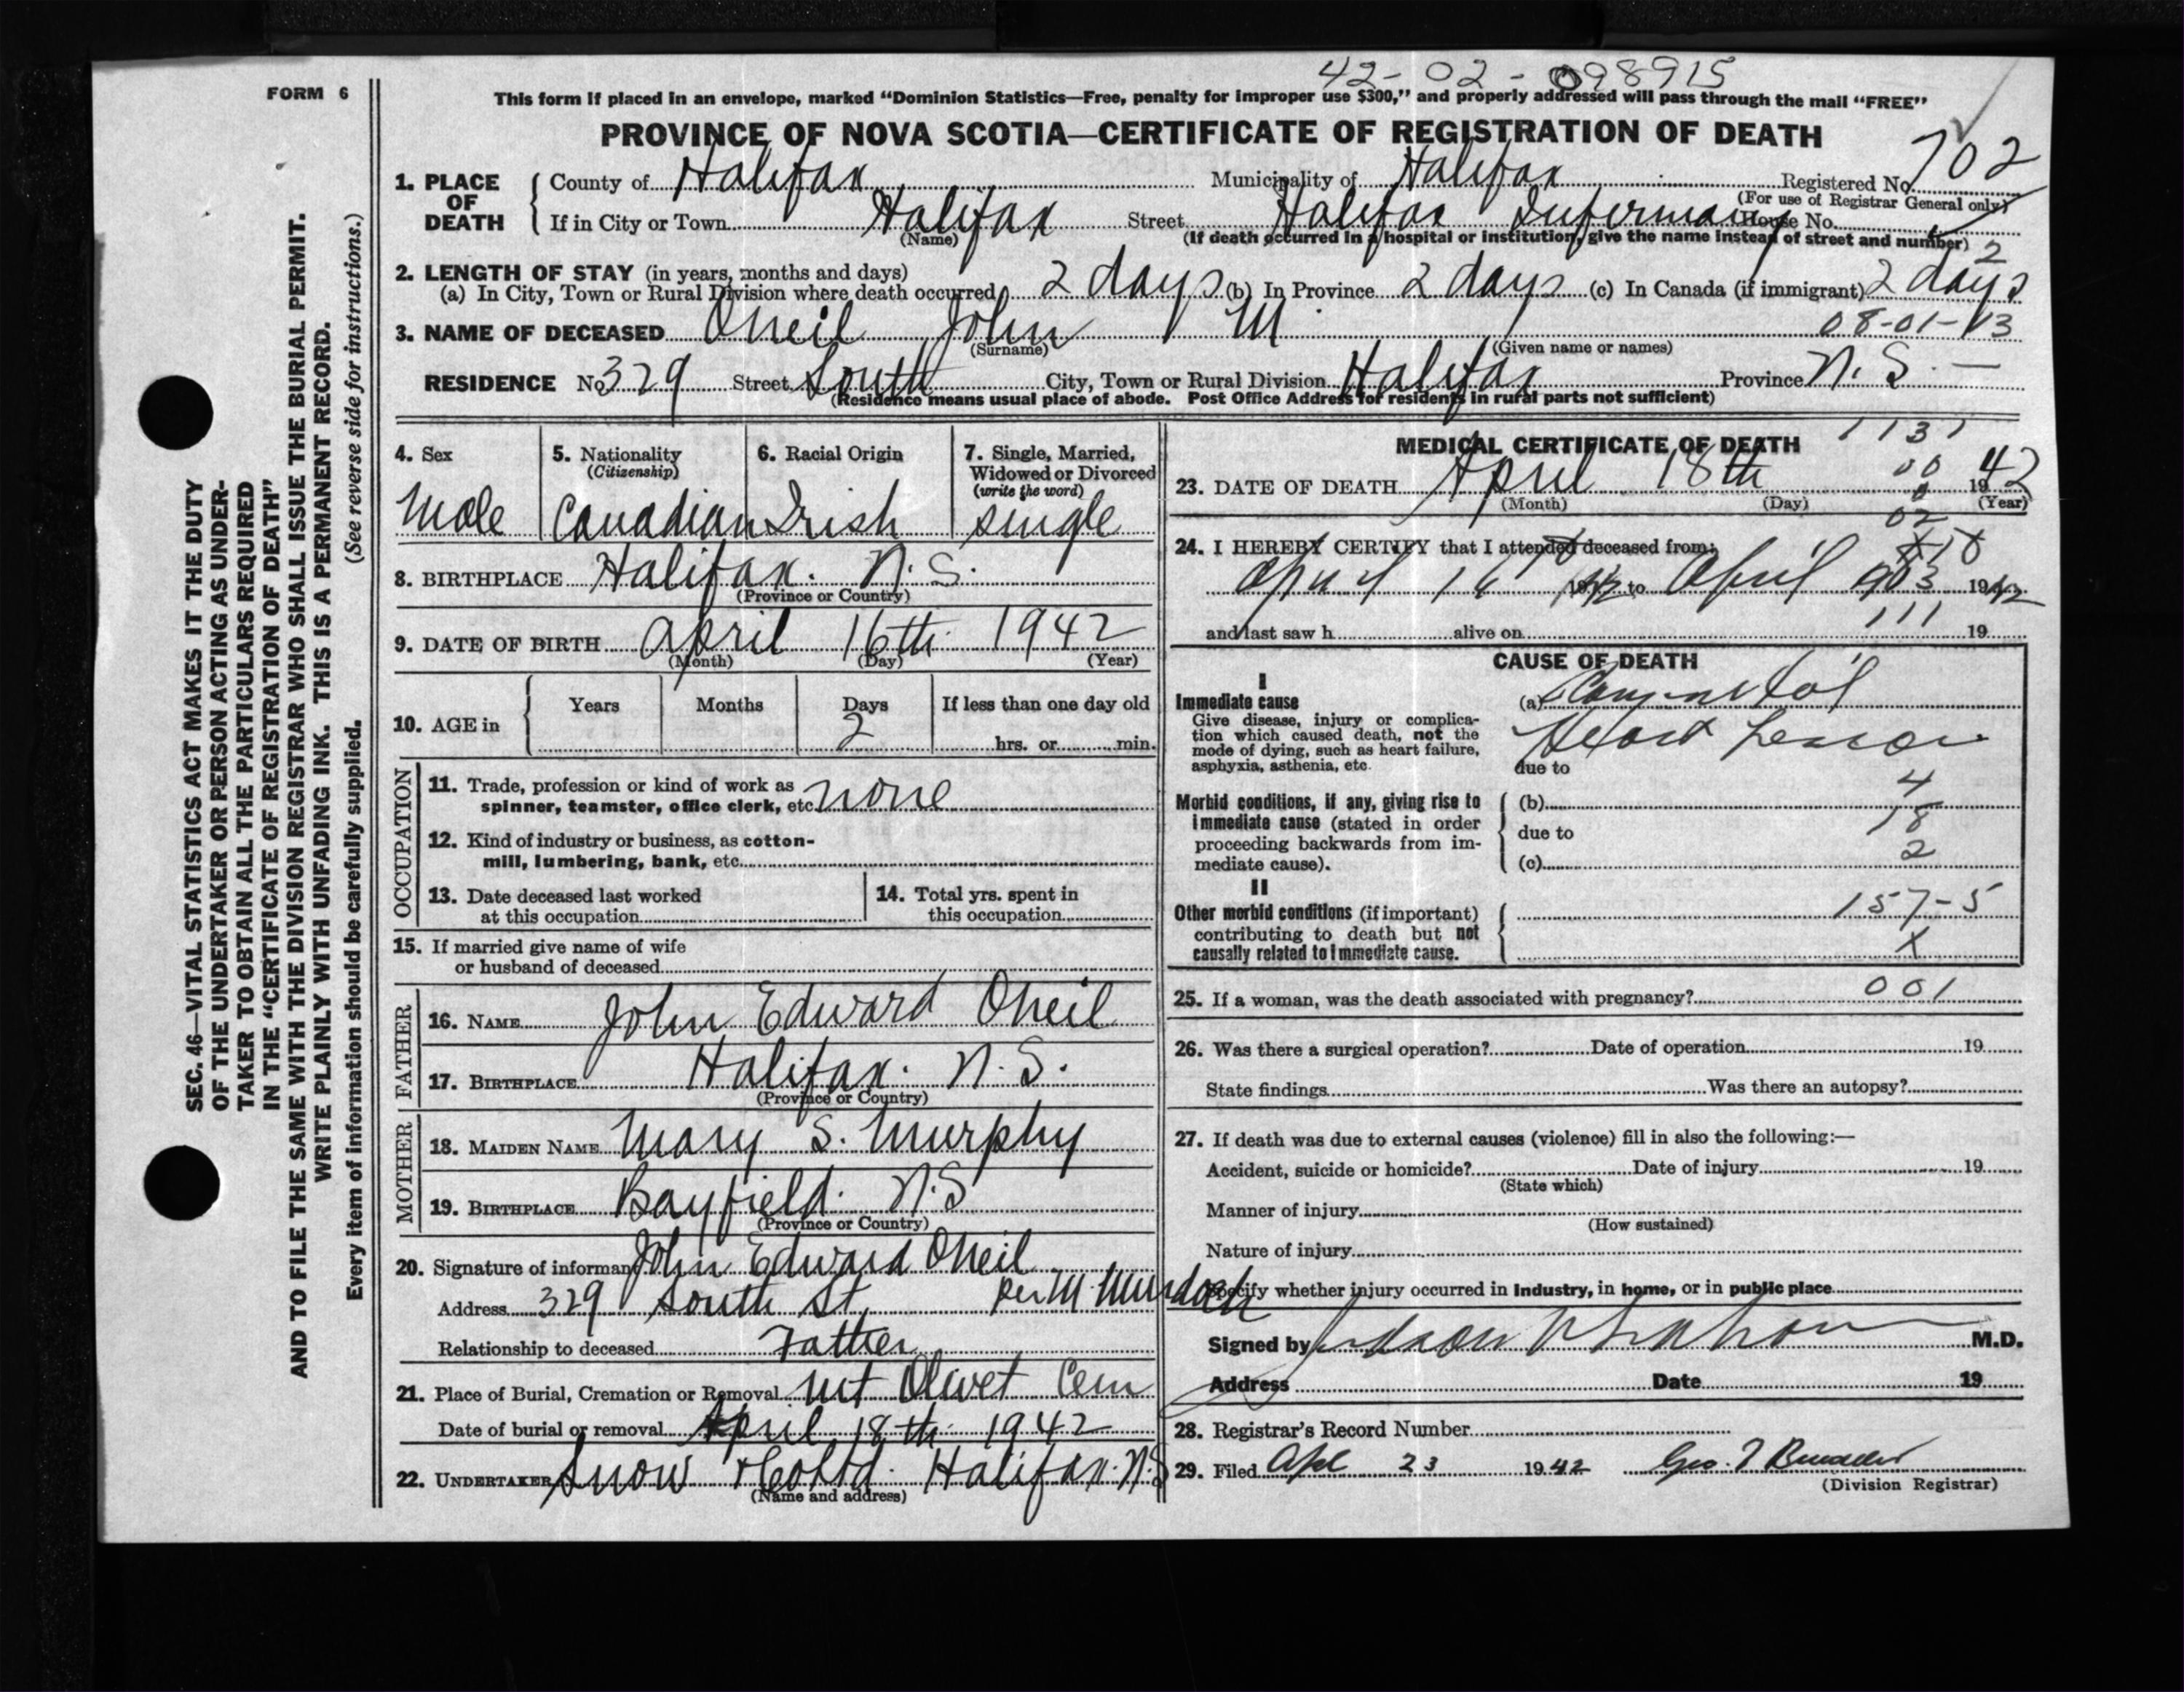 42-02-098915
FORM 6
This form if placed in an envelope, marked “Dominion Statistics—Free, penalty for improper use $300,” and properly addressed will pass through the mail “FREE”
PROVINCE OF NOVA SCOTIA—CERTIFICATE OF REGISTRATION OF DEATH
1. PLACE OF DEATH County of Halifax Municipality of Halifax Registered No. 702
(For use of Registrar General only)
If in City or Town Halifax Street Halifax Infirmary House No.
(Name) (If death occurred in a hospital or institution, give the name instead of street and number)
2
2. LENGTH OF STAY (in years, months and days)
(a) In City, Town or Rural Division where death occurred 2 days (b) In Province 2 days (c) In Canada (if immigrant) 2 days
3. NAME OF DECEASED Oneil John M. 08-01-13
(Surname) (Given name or names)
RESIDENCE No. 329 Street South City, Town or Rural Division Halifax Province N. S. —
(Residence means usual place of abode. Post Office Address for residents in rural parts not sufficient)
SEC. 46—VITAL STATISTICS ACT MAKES IT THE DUTY
OF THE UNDERTAKER OR PERSON ACTING AS UNDER-
TAKER TO OBTAIN ALL THE PARTICULARS REQUIRED
IN THE “CERTIFICATE OF REGISTRATION OF DEATH”
AND TO FILE THE SAME WITH THE DIVISION REGISTRAR WHO SHALL ISSUE THE BURIAL PERMIT.
WRITE PLAINLY WITH UNFADING INK. THIS IS A PERMANENT RECORD.
Every item of information should be carefully supplied. (See reverse side for instructions.)
4. Sex 5. Nationality 6. Racial Origin 7. Single, Married,
(Citizenship) Widowed or Divorced
(write the word)
Male Canadian Irish single
8. BIRTHPLACE Halifax. N. S.
(Province or Country)
9. DATE OF BIRTH April 16th 1942
(Month) (Day) (Year)
10. AGE in Years Months Days If less than one day old
2 hrs. or min.
OCCUPATION
11. Trade, profession or kind of work as
spinner, teamster, office clerk, etc. none
12. Kind of industry or business, as cotton-
mill, lumbering, bank, etc.
13. Date deceased last worked
at this occupation
14. Total yrs. spent in
this occupation
15. If married give name of wife
or husband of deceased
FATHER
16. NAME John Edward Oneil
17. BIRTHPLACE Halifax. N. S.
(Province or Country)
MOTHER
18. MAIDEN NAME Mary S. Murphy
19. BIRTHPLACE Bayfield. N.S
(Province or Country)
20. Signature of informant John Edward Oneil
Address 329 South St. per M Murdoch
Relationship to deceased Father
21. Place of Burial, Cremation or Removal Mt Olivet Cem
Date of burial or removal April 18th 1942
22. UNDERTAKER Snow & Co Ltd. Halifax. N.S
(Name and address)
1131
MEDICAL CERTIFICATE OF DEATH
00
23. DATE OF DEATH April 18th 1942
(Month) (Day) (Year)
02
24. I HEREBY CERTIFY that I attended deceased from:
April 16 1942 to April 1942
111
and last saw h alive on 19
CAUSE OF DEATH
I
Immediate cause
Give disease, injury or complica-
tion which caused death, not the
mode of dying, such as heart failure,
asphyxia, asthenia, etc.
(a) Congenital
Heart Lesion
due to
4
Morbid conditions, if any, giving rise to
immediate cause (stated in order
proceeding backwards from im-
mediate cause).
(b)
due to 18
(c) 2
II
Other morbid conditions (if important)
contributing to death but not
causally related to immediate cause.
157-5
X
25. If a woman, was the death associated with pregnancy? 001
26. Was there a surgical operation? Date of operation 19
State findings Was there an autopsy?
27. If death was due to external causes (violence) fill in also the following:—
Accident, suicide or homicide? Date of injury 19
(State which)
Manner of injury
(How sustained)
Nature of injury
Specify whether injury occurred in Industry, in home, or in public place
Signed by M.D.
Address Date 19
28. Registrar's Record Number
29. Filed Apl 23 1942 Geo.
(Division Registrar)